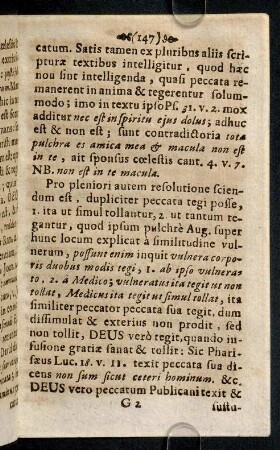 (147)
catum. Satis tamen ex pluribus aliis scri-
pturæ textibus intelligitur, quod hæc
non sint intelligenda, quasi peccata re-
manerent in anima & tegerentur solum-
modo; imo in textu ipso Ps. 31. v. 2. mox
additur nec est in spiritu ejus dolus; adhuc
est & non est; sunt contradictoria tota
pulchra es amica mea & macula non est
in te, ait sponsus cœlestis cant. 4. v. 7.
NB. non est in te macula.
Pro pleniori autem resolutione scien-
dum est, dupliciter peccata tegi posse,
1. ita ut simul tollantur, 2. ut tantum te-
gantur, quod ipsum pulchrè Aug. super
hunc locum explicat à similitudine vul-
nerum, possunt enim inquit vulnera corpo-
ris duobus modis tegi, 1. ab ipso vulnera-
to, 2. à Medico; vulneratus ita tegit ut non
tollat, Medicus ita tegit ut simul tollat, ita
similiter peccator peccata sua tegit, dum
dissimulat & exterius non prodit, sed
non tollit, DEUS verò tegit, quando in-
fusione gratiæ sanat & tollit: Sic Phari-
sæus Luc. 18. v. 11. texit peccata sua di-
cens non sum sicut ceteri hominum. &c.
DEUS vero peccatum Publicani texit &
G 2
sustu-